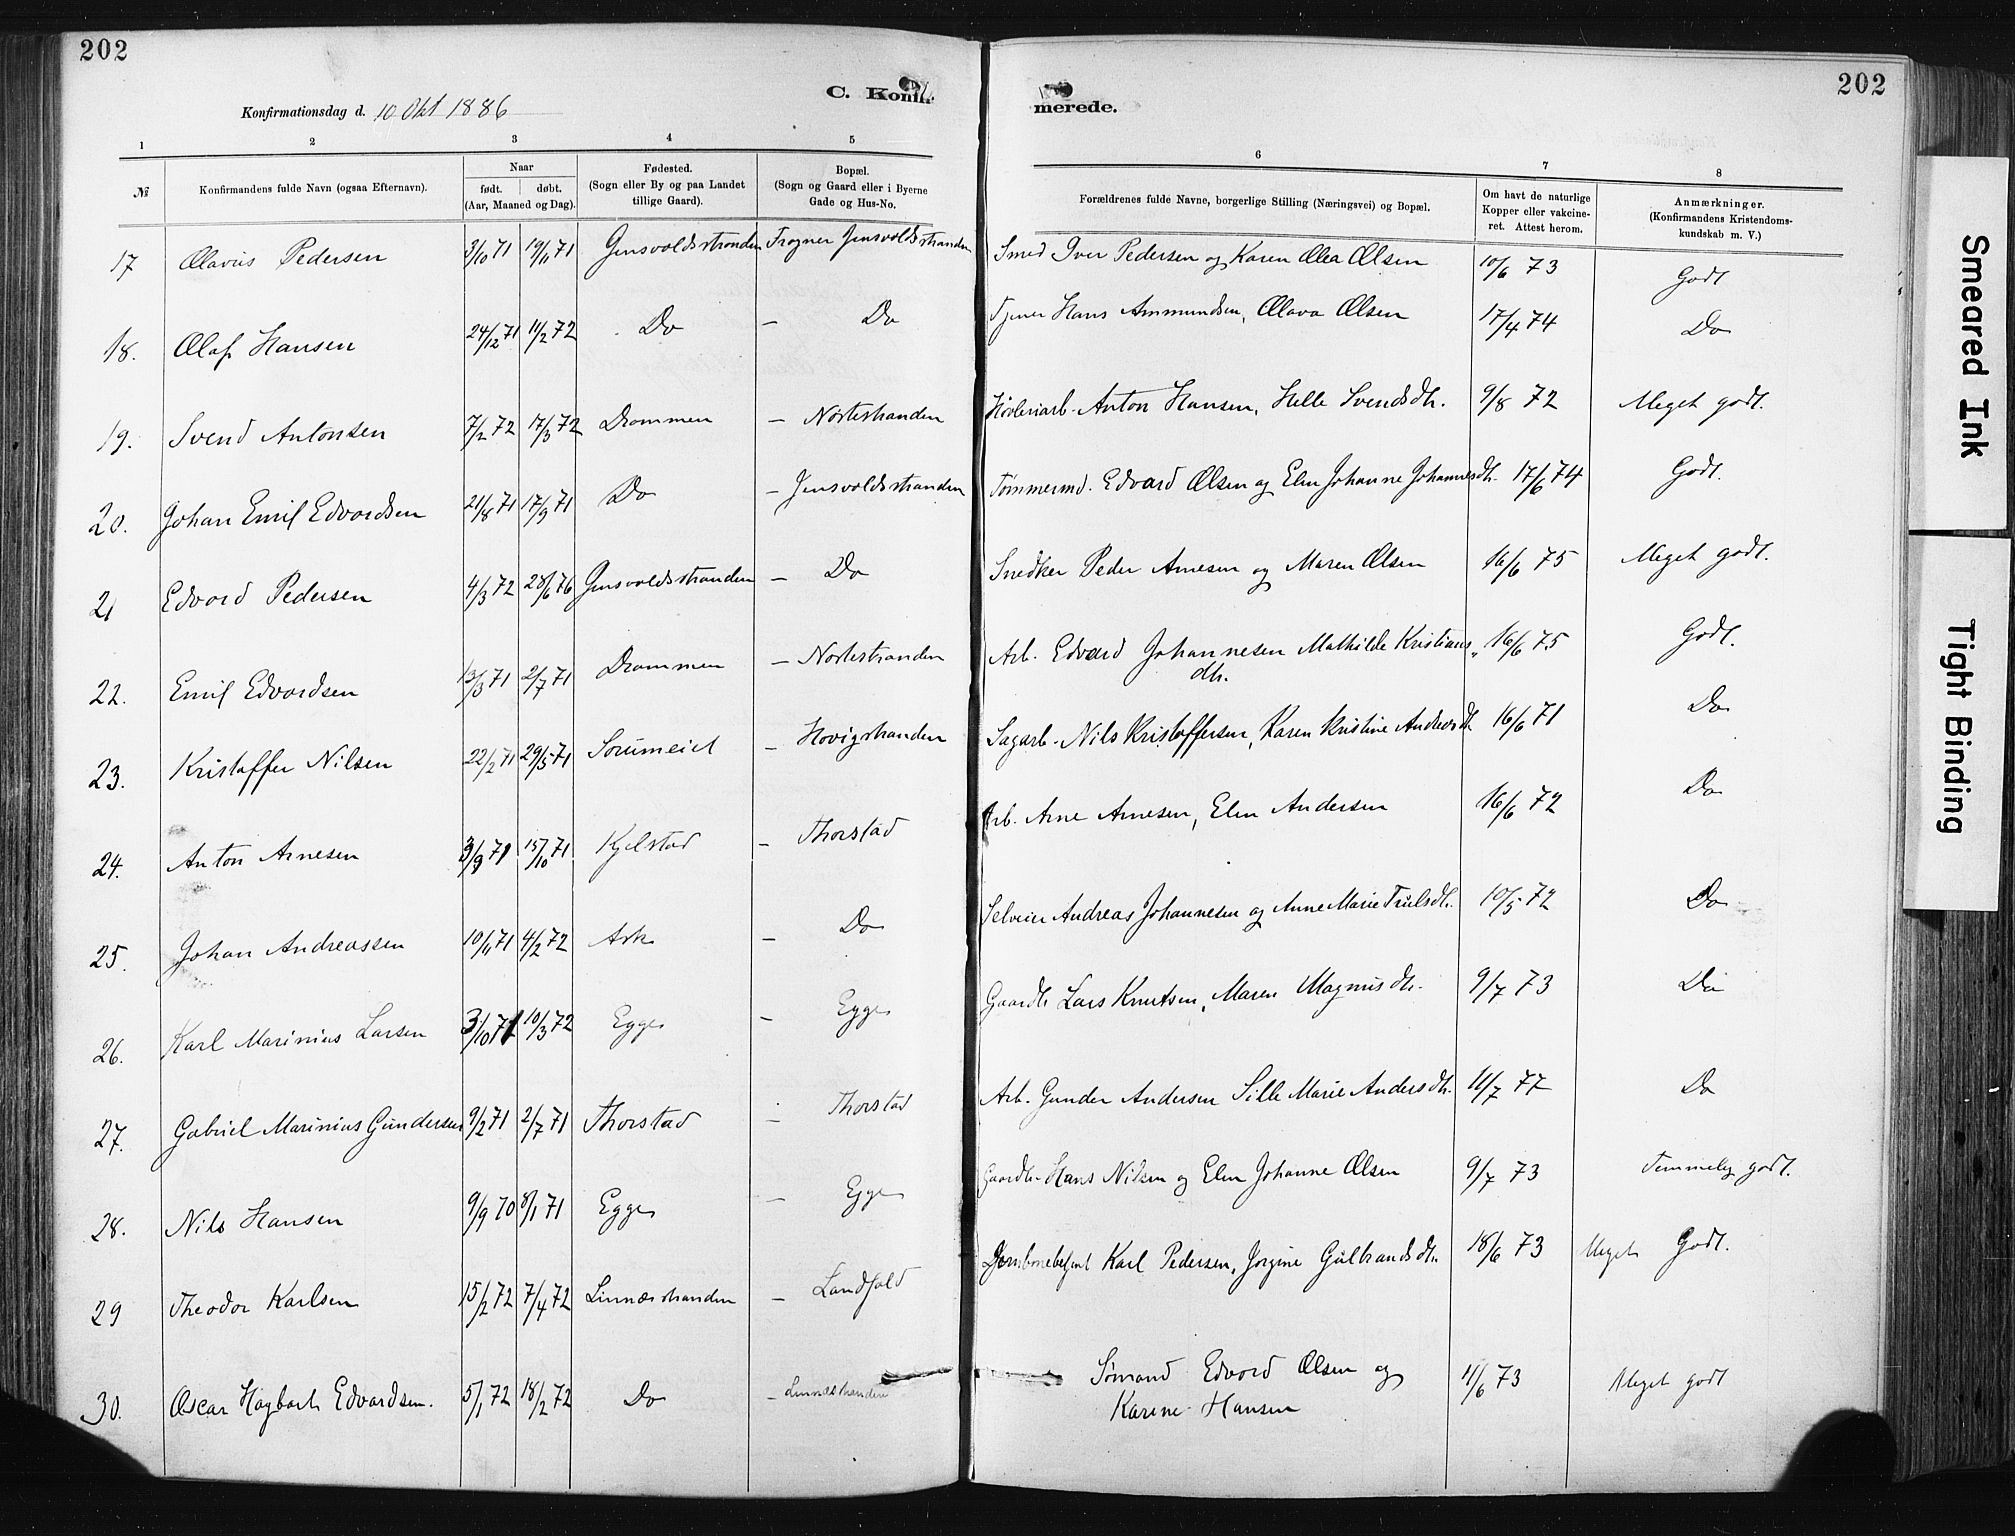 202
202
C. Konfir-
merede.
Konfirmationsdag d. 10 Okt 1886
1 2 3 4 5 6 7 8
№ Konfirmandens fulde Navn (ogsaa Efternavn). Naar født. døbt. (Aar, Maaned og Dag). Fødested. (Sogn eller By og paa Landet tillige Gaard). Bopæl. (Sogn og Gaard eller i Byerne Gade og Hus-No. Forældrenes fulde Navne, borgerlige Stilling (Næringsvei) og Bopæl. Om havt de naturlige Kopper eller vakcineret. Attest herom. Anmærkninger. (Konfirmandens Kristendomskundskab m. V.)
17 Olavus Pedersen 3/10 71 19/11 71 Gjnsvoldsstranden Frogner Jensvoldsstranden Smed Iver Pedersen og Karen Olea Olsen 10/6 73 Godt
18. Olaf Hansen 24/12 71 11/2 72 Do – Do Tjener Hans Ammundsen, Olava Olsen 17/4 74 Do
19. Svend Antonsen 7/2 72 17/3 72 Drammen – Nortestranden Høvleriarb. Anton Hansen, Helle Svendsdtr. 9/8 72 Meget godt.
20. Johan Emil Edvardsen 21/8 71 17/9 71 Do – Jensvoldsstranden Tømmermd. Edvard Olsen og Elen Johanne Johannesdtr. 17/6 74 Godt.
21 Edvard Pedersen 4/3 72 28/6 76 Gjnsvoldsstranden – Do Snedker Peder Arnesen og Maren Olsen 16/6 75 Meget godt.
22. Emil Edvardsen 13/3 71 2/7 71 Drammen – Nortestranden Arb. Edvard Johannesen Mathilde Kristians dtr. 16/6 75 Godt.
23. Kristoffer Nilsen 22/2 71 29/5 71 Sørumeiet – Hovigstranden Sagarb. Nils Kristoffersen, Karen Kristine Andreasdtr 16/6 71 Do
24. Anton Arnesen 3/9 71 15/10 71 Kjelstad – Thorstad Arb. Arne Arnesen, Elen Andersen 16/6 72 Do
25. Johan Andreassen 10/11 71 4/2 72 Ask – Do Selveier Andreas Johannesen og Anne Marie Trulsdtr. 10/5 72 Do
26. Karl Marinius Larsen 3/10 71 10/3 72 Egge – Egge Gaardbr Lars Knutsen, Maren Magnusdtr. 9/7 73 Do
27. Gabriel Marinius Gundersen 9/2 71 2/7 71 Thorstad – Thorstad Arb. Gunder Andersen Sille Marie Andersdtr. 11/7 77 Do
28. Nils Hansen 9/9 70 8/1 71 Egge – Egge Gaardbr. Hans Nilsen og Elen Johanne Olsen 9/7 73 Temmelig godt.
29 Theodor Karlsen 15/2 72 7/4 72 Linnæsstranden – Landfald Jernbanebetjent Karl Pedersen, Jørgine Gulbrandsdtr. 18/6 73 Meget Godt.
30. Oscar Hagbart Edvardsen. 5/1 72 18/2 72 Do – Linnæsstranden Sømand Edvard Olsen og Karine Hansen 11/6 73 Meget godt
Smeared Ink
Tight Binding